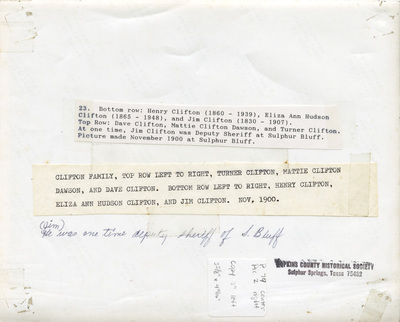 23. Bottom row: Henry Clifton (1860 - 1939), Eliza Ann Hudson
Clifton (1865 - 1948), and Jim Clifton (1830 - 1907).
Top Row: Dave Clifton, Mattie Clifton Dawson, and Turner Clifton.
At one time, Jim Clifton was Deputy Sheriff at Sulphur Bluff.
Picture made November 1900 at Sulphur Bluff.
CLIFTON FAMILY, TOP ROW LEFT TO RIGHT, TURNER CLIFTON, MATTIE CLIFTON
DAWSON, AND DAVE CLIFTON. BOTTOM ROW LEFT TO RIGHT, HENRY CLIFTON,
ELIZA ANN HUDSON CLIFTON, AND JIM CLIFTON. NOV, 1900.
(Jim)
He was one time deputy sheriff of S. Bluff
HOPKINS COUNTY HISTORICAL SOCIETY
Sulphur Springs, Texas 75482